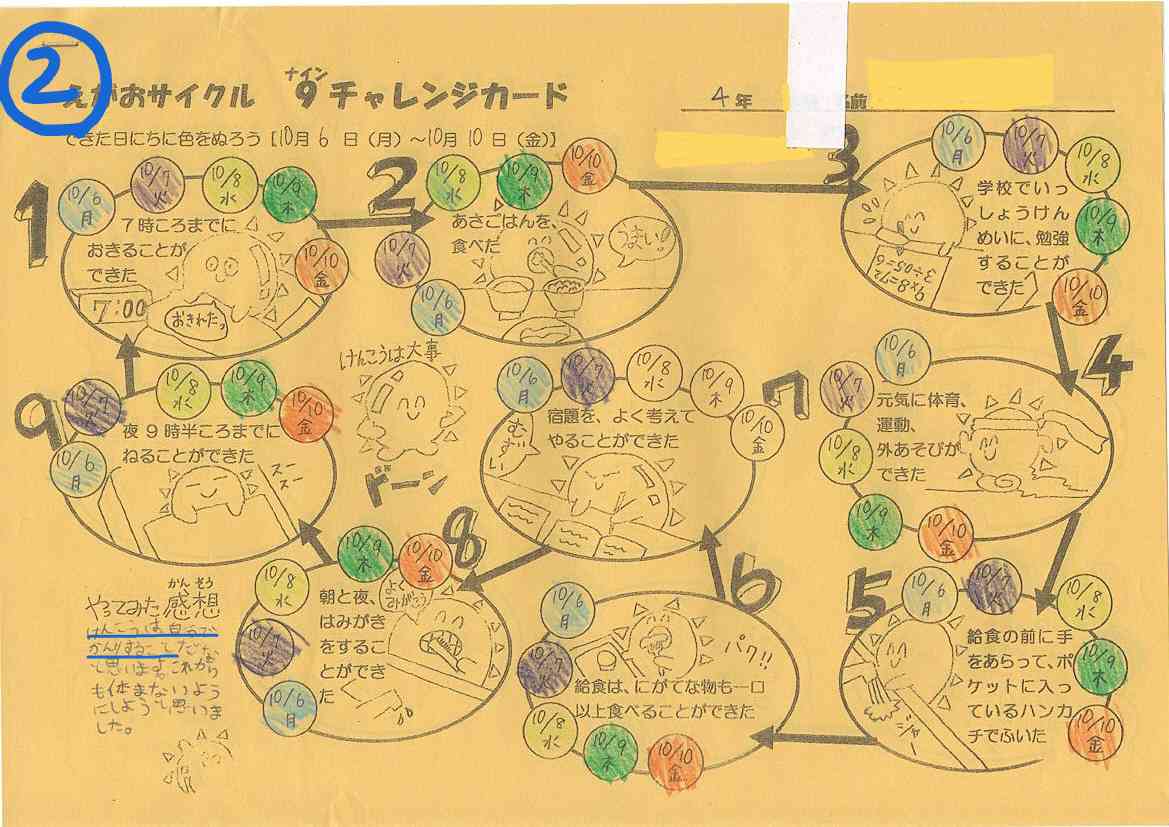 ②
えがおサイクル 9チャレンジカード
ナイン
4年
名前
できた日にちに色をぬろう [10月 6 日 (月) ～10月 10 日 (金)]
1
10/6 月
10/7 火
10/8 水
10/9 木
10/10 金
7時ころまでに
おきることが
できた
7:00
2
10/6 月
10/7 火
10/8 水
10/9 木
10/10 金
あさごはんを、
食べだ
うまい!!
3
10/6 月
10/7 火
10/8 水
10/9 木
10/10 金
学校でいっ
しょうけん
めいに、勉強
することが
できた
9×8=72
4
10/6 月
10/7 火
10/8 水
10/9 木
10/10 金
元気に体育、
運動、
外あそびが
できた
5
10/6 月
10/7 火
10/8 水
10/9 木
10/10 金
給食の前に手
をあらって、ポ
ケットに入っ
ているハンカ
チでふいた
ジャー
6
10/6 月
10/7 火
10/8 水
10/9 木
10/10 金
パク!!
給食は、にがてな物も一口
以上食べることができた
7
10/6 月
10/7 火
10/8 水
10/9 木
10/10 金
宿題を、よく考えて
やることができた
8
10/6 月
10/7 火
10/8 水
10/9 木
10/10 金
よく
みがこう
朝と夜、
はみがき
をするこ
とができ
た
9
10/6 月
10/7 火
10/8 水
10/9 木
10/10 金
夜9時半ころまでに
ねることができた
スー
スー
けんこうは大事
ドーン
かんそう
やってみた感想
けんこうは
思います。これから
も休まないよう
にしようと思いま
した。